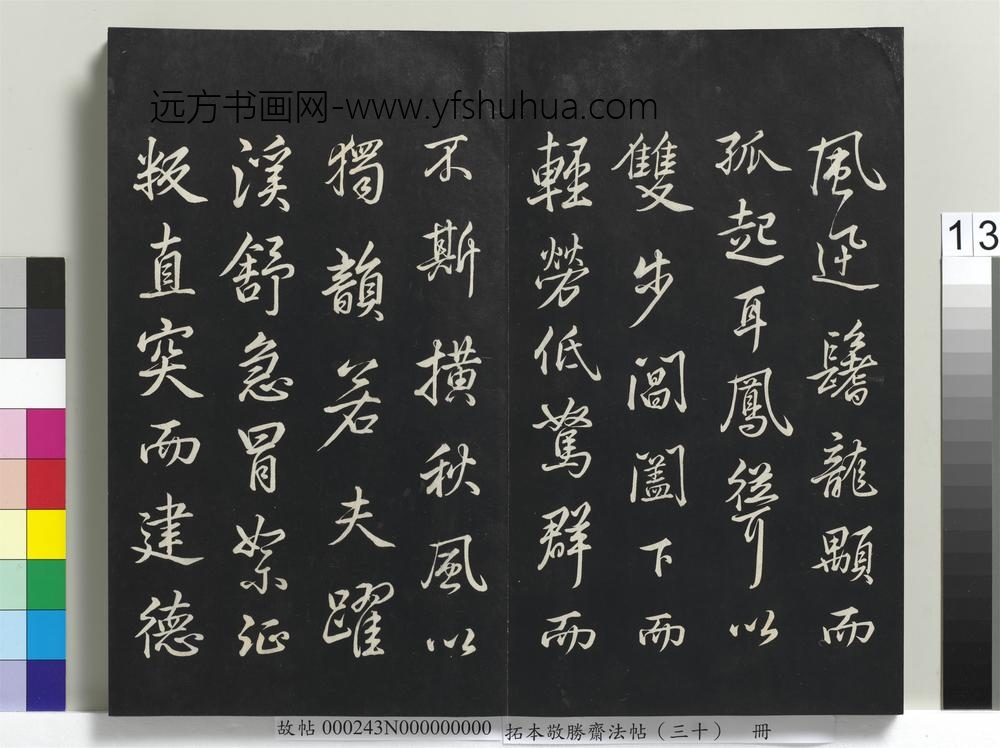 远方书画网-www.yfshuhua.com
風迅鬐龍顒而
孤起耳鳳聳以
雙步閶闔下而
輕勞低駑群而
不斯橫秋風以
獨韻若夫躍
溪舒急冒絮征
叛直突而建德
13
故帖 000243N000000000
拓本敬勝齋法帖（三十） 冊